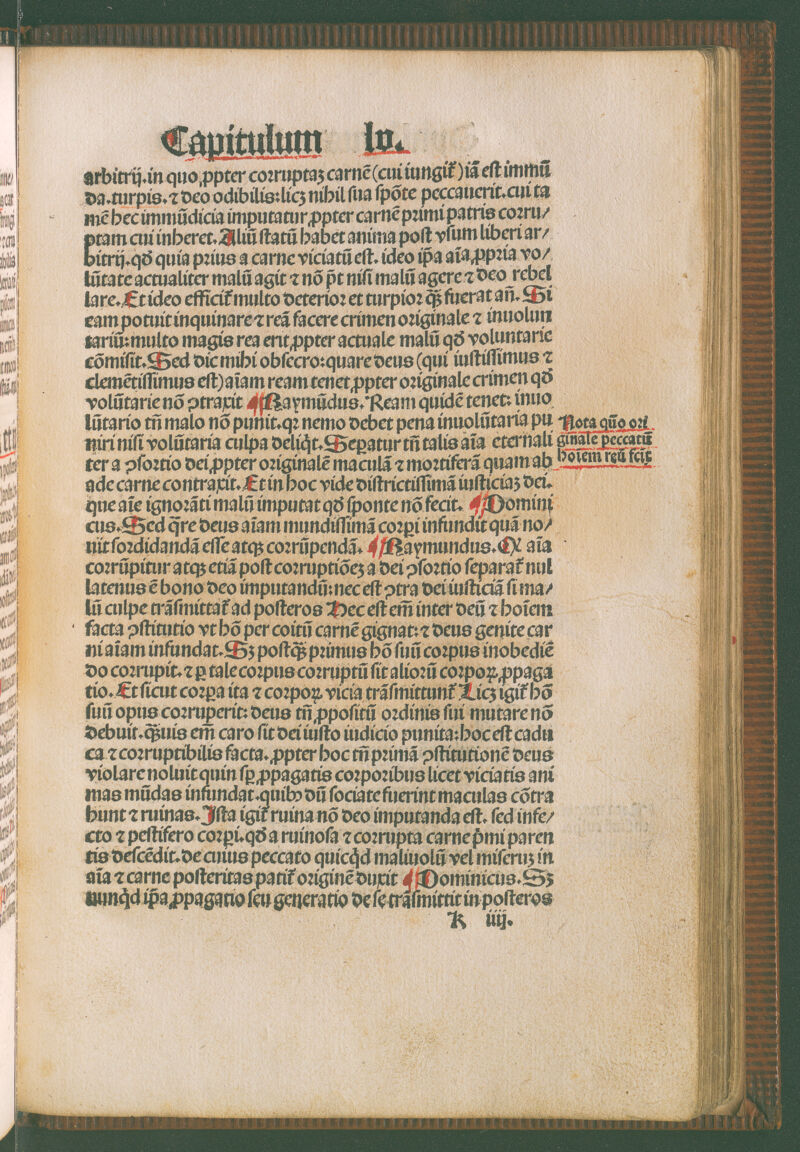 Capitulum lv.
arbitrij. in quo ꝓpter corruptaꝫ carnē (cui iungit᷑) iā est immū
da. turpis. ⁊ deo odibilis: licꝫ nihil sua spōte peccauerit. cui ta
mē hec immūdicia imputatur ꝓpter carnē primi patris corru/
ptam cui inheret. Aliū statū habet anima post vsum liberi ar/
bitrij. qđ quia prius a carne viciatū est. ideo ip̄a aīa ꝓpria vo/
lūtate actualiter malū agit ⁊ nō p̄t nisi malū agere ⁊ deo rebel
lare. Et ideo efficit᷑ multo deterior et turpior q̄ꝫ fuerat añ. Si
eam potuit inquinare ⁊ reā facere crimen originale ⁊ inuolun
tariū: multo magis rea erit ꝓpter actuale malū qđ voluntarie
cōmisit. Sed dic mihi obsecro: quare deus (qui iustissimus ⁊
clemētissimus est) aīam ream tenet ꝓpter originale crimen qđ
volūtarie nō ꝯtraxit ¶ Raymūdus. Ream quidē tenet: inuo
lūtario tñ malo nō punit. qꝛ nemo debet pena inuolūtaria pu
niri nisi volūtaria culpa deliq̇t. Seꝑatur tñ talis aīa eternali
ter a ꝯsortio dei ꝓpter originalē maculā ⁊ mortiferā quam ab
ade carne contraxit. Et in hoc vide districtissimā iusticiaꝫ dei.
que aīe ignorāti malū imputat qđ sponte nō fecit. ¶ Domini
cus. Sed q̄re deus aīam mundissimā corꝑi infundit quā no/
uit sordidandā esse atqꝫ corrūpendā. ¶ Raymundus. Q aīa
corrūpitur atqꝫ etiā post corruptiōeꝫ a dei ꝯsortio separat᷑ nul
latenus ē bono deo imputandū: nec est ꝯtra dei iusticiā si ma/
lū culpe trāsmittat᷑ ad posteros Hec est em̄ inter deū ⁊ hoīem
facta ꝯstitutio vt hō per coitū carnē gignat: ⁊ deus genite car
ni aīam infundat. Sꝫ postq̄ꝫ primus hō suū corpus inobediē
do corrupit. ⁊ ꝑ tale corpus corruptū sit alioꝝ corpoꝝ ꝓpaga
tio. Et sicut corꝑa ita ⁊ corpoꝝ vicia trāsmittunt᷑ Licꝫ igit᷑ hō
suū opus corruperit: deus tñ ꝓpositū ordinis sui mutare nō
debuit. q̄ꝫuis em̄ caro sit dei iusto iudicio punita: hoc est cadu
ca ⁊ corruptibilis facta. ꝓpter hoc tñ primā ꝯstitutionē deus
violare noluit quin sꝑ ꝓpagatis corporibus licet viciatis ani
mas mūdas infundat. quibꝰ dū sociate fuerint maculas cōtra
hunt ⁊ ruinas. Ista igit᷑ ruina nō deo imputanda est. sed infe/
cto ⁊ pestifero corꝑi. qđ a ruinosa ⁊ corrupta carne p̄mi paren
tis descēdit. de cuius peccato quicq̇d maliuolū vel miseruꝫ in
aīa ⁊ carne posteritas patit᷑ originē duxit ¶ Dominicus. Sꝫ
nunq̇d ip̄a ꝓpagatio seu generatio de se trāsmittit in posteros
K iiij.
Nota quō ori
ginale peccatū
hoīem reū